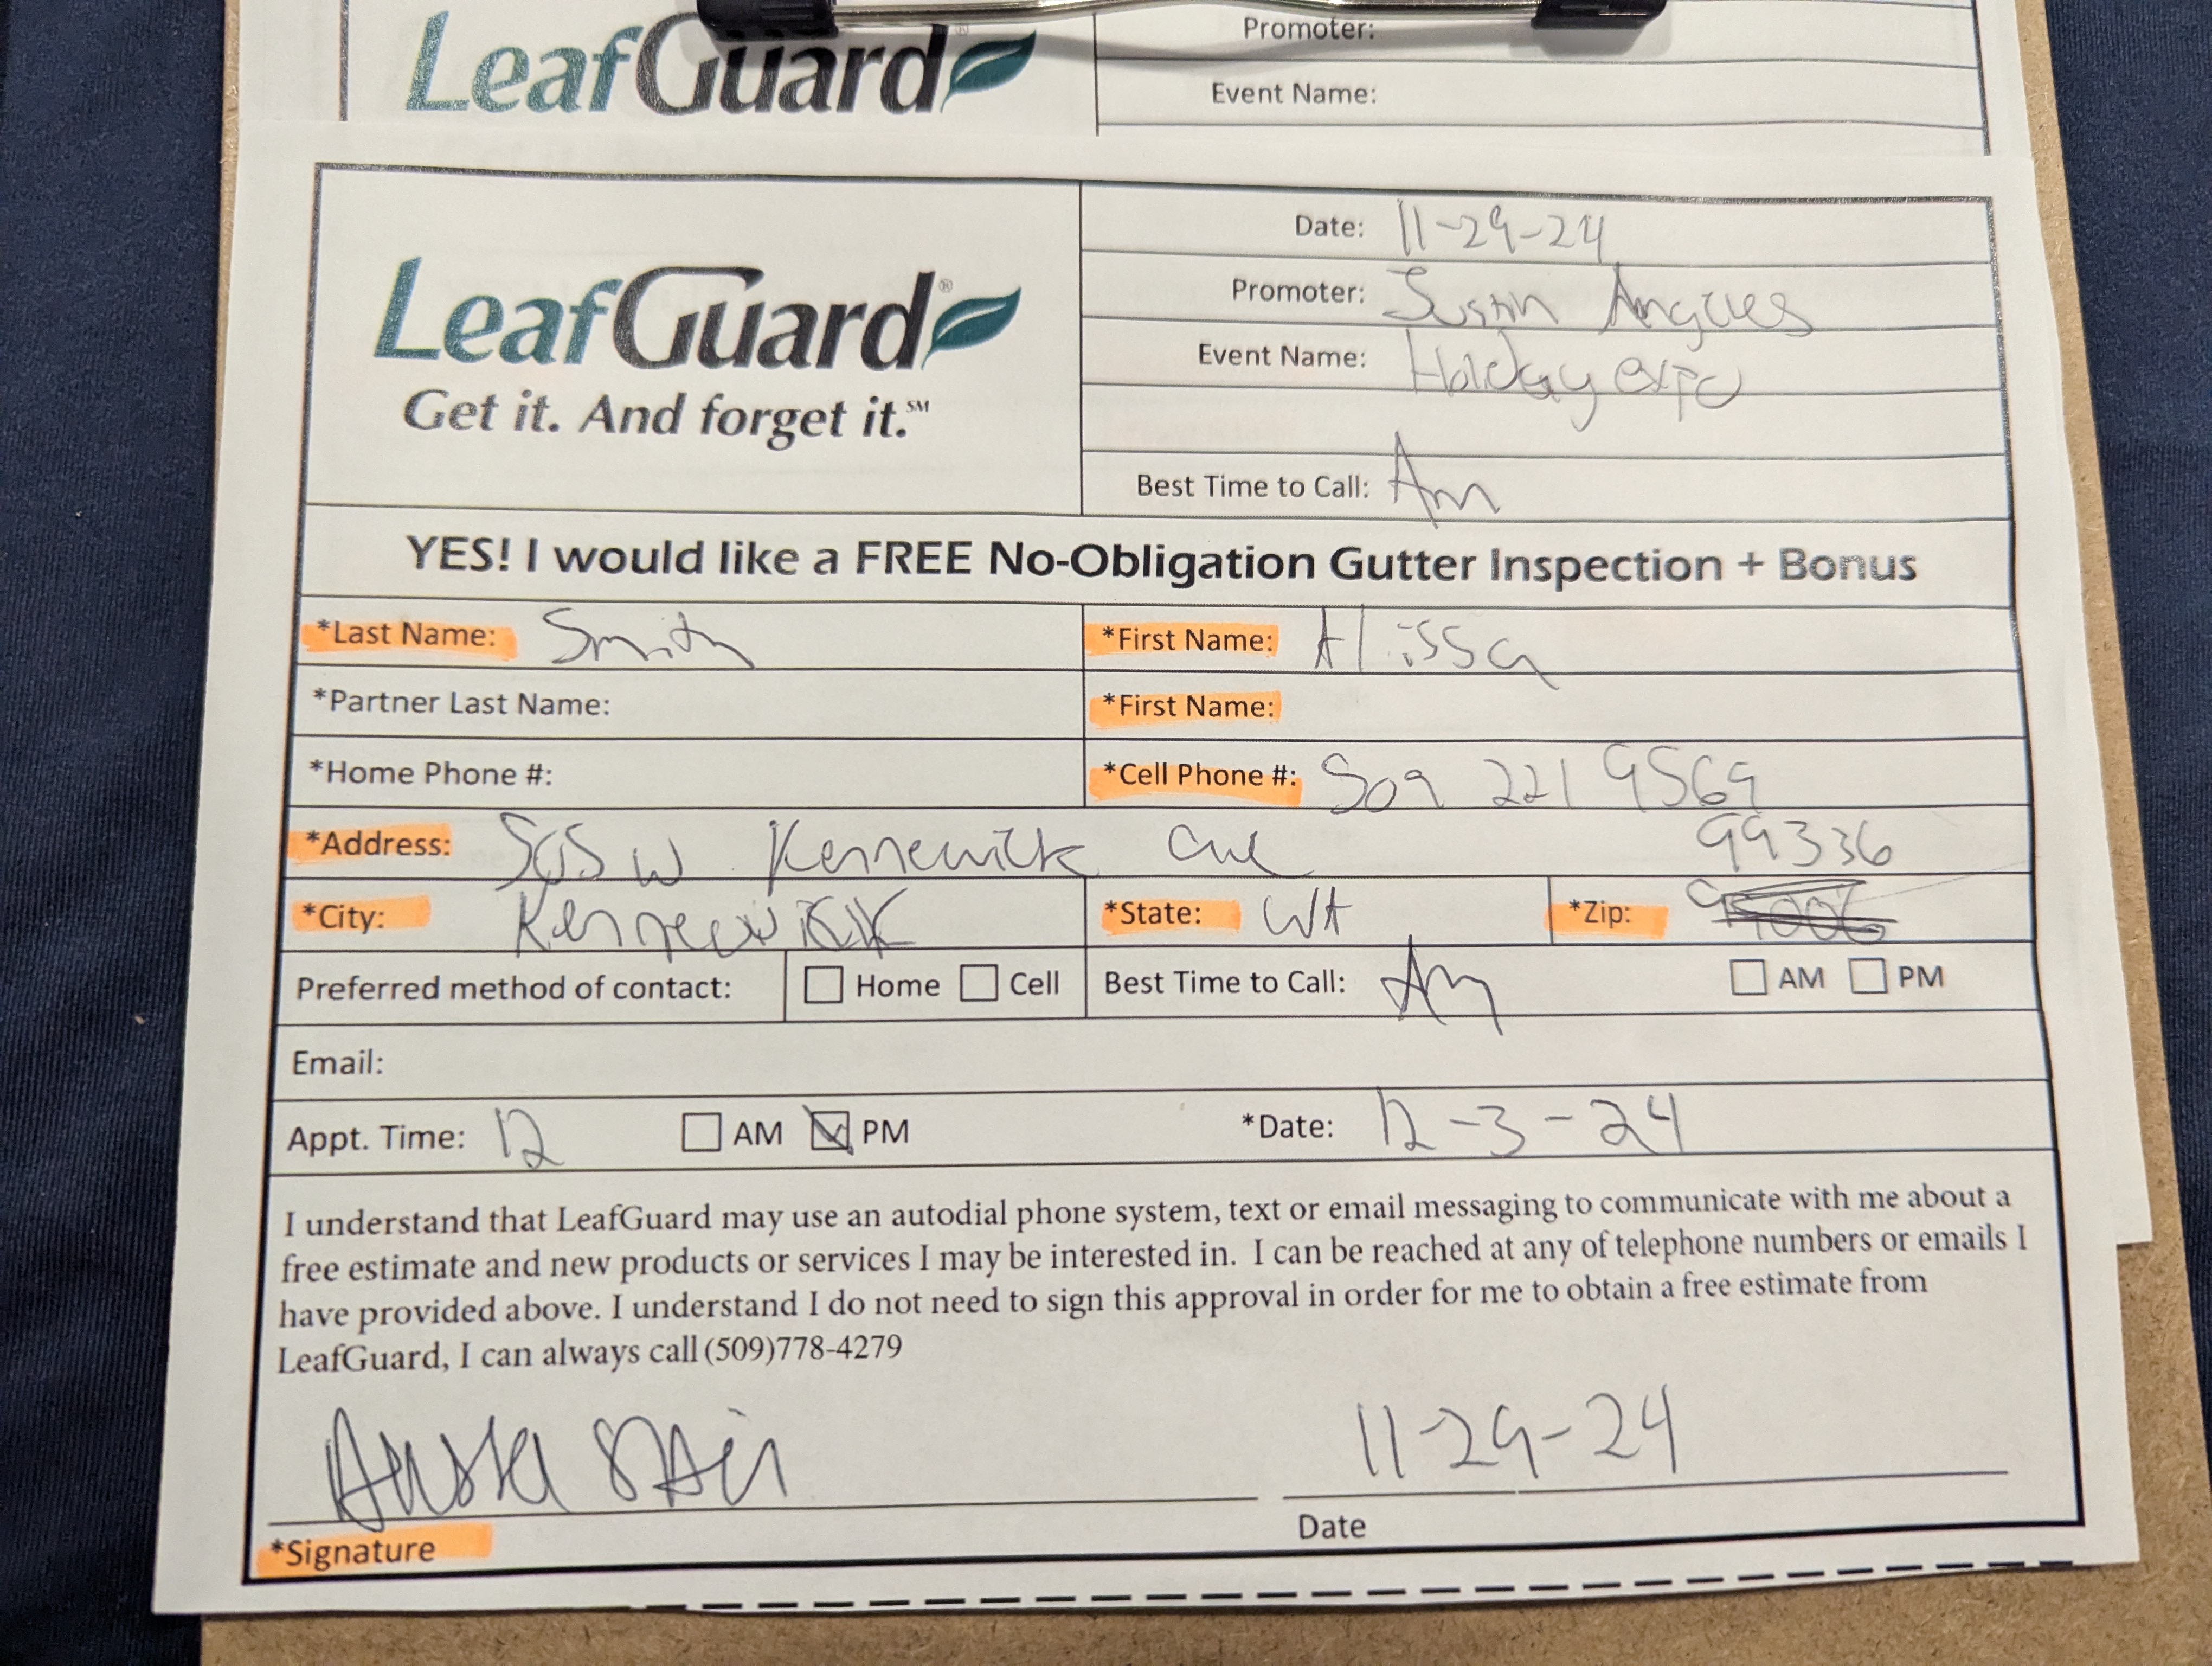 LeafGuard
Promoter:
Event Name:
LeafGuard®
Get it. And forget it.℠
Date: 11-29-24
Promoter: Justin
Event Name: Holiday expo
Best Time to Call: Am
YES! I would like a FREE No-Obligation Gutter Inspection + Bonus
*Last Name: Smith *First Name: Alissa
*Partner Last Name: *First Name:
*Home Phone #: *Cell Phone #: 509 221 9569
*Address: 505 W Kennewick ave 99336
*City: Kennewick *State: WA *Zip:
Preferred method of contact: Home Cell Best Time to Call: Am AM PM
Email:
Appt. Time: 12 AM PM *Date: 12-3-24
I understand that LeafGuard may use an autodial phone system, text or email messaging to communicate with me about a
free estimate and new products or services I may be interested in. I can be reached at any of telephone numbers or emails I
have provided above. I understand I do not need to sign this approval in order for me to obtain a free estimate from
LeafGuard, I can always call (509)778-4279
11-29-24
*Signature Date